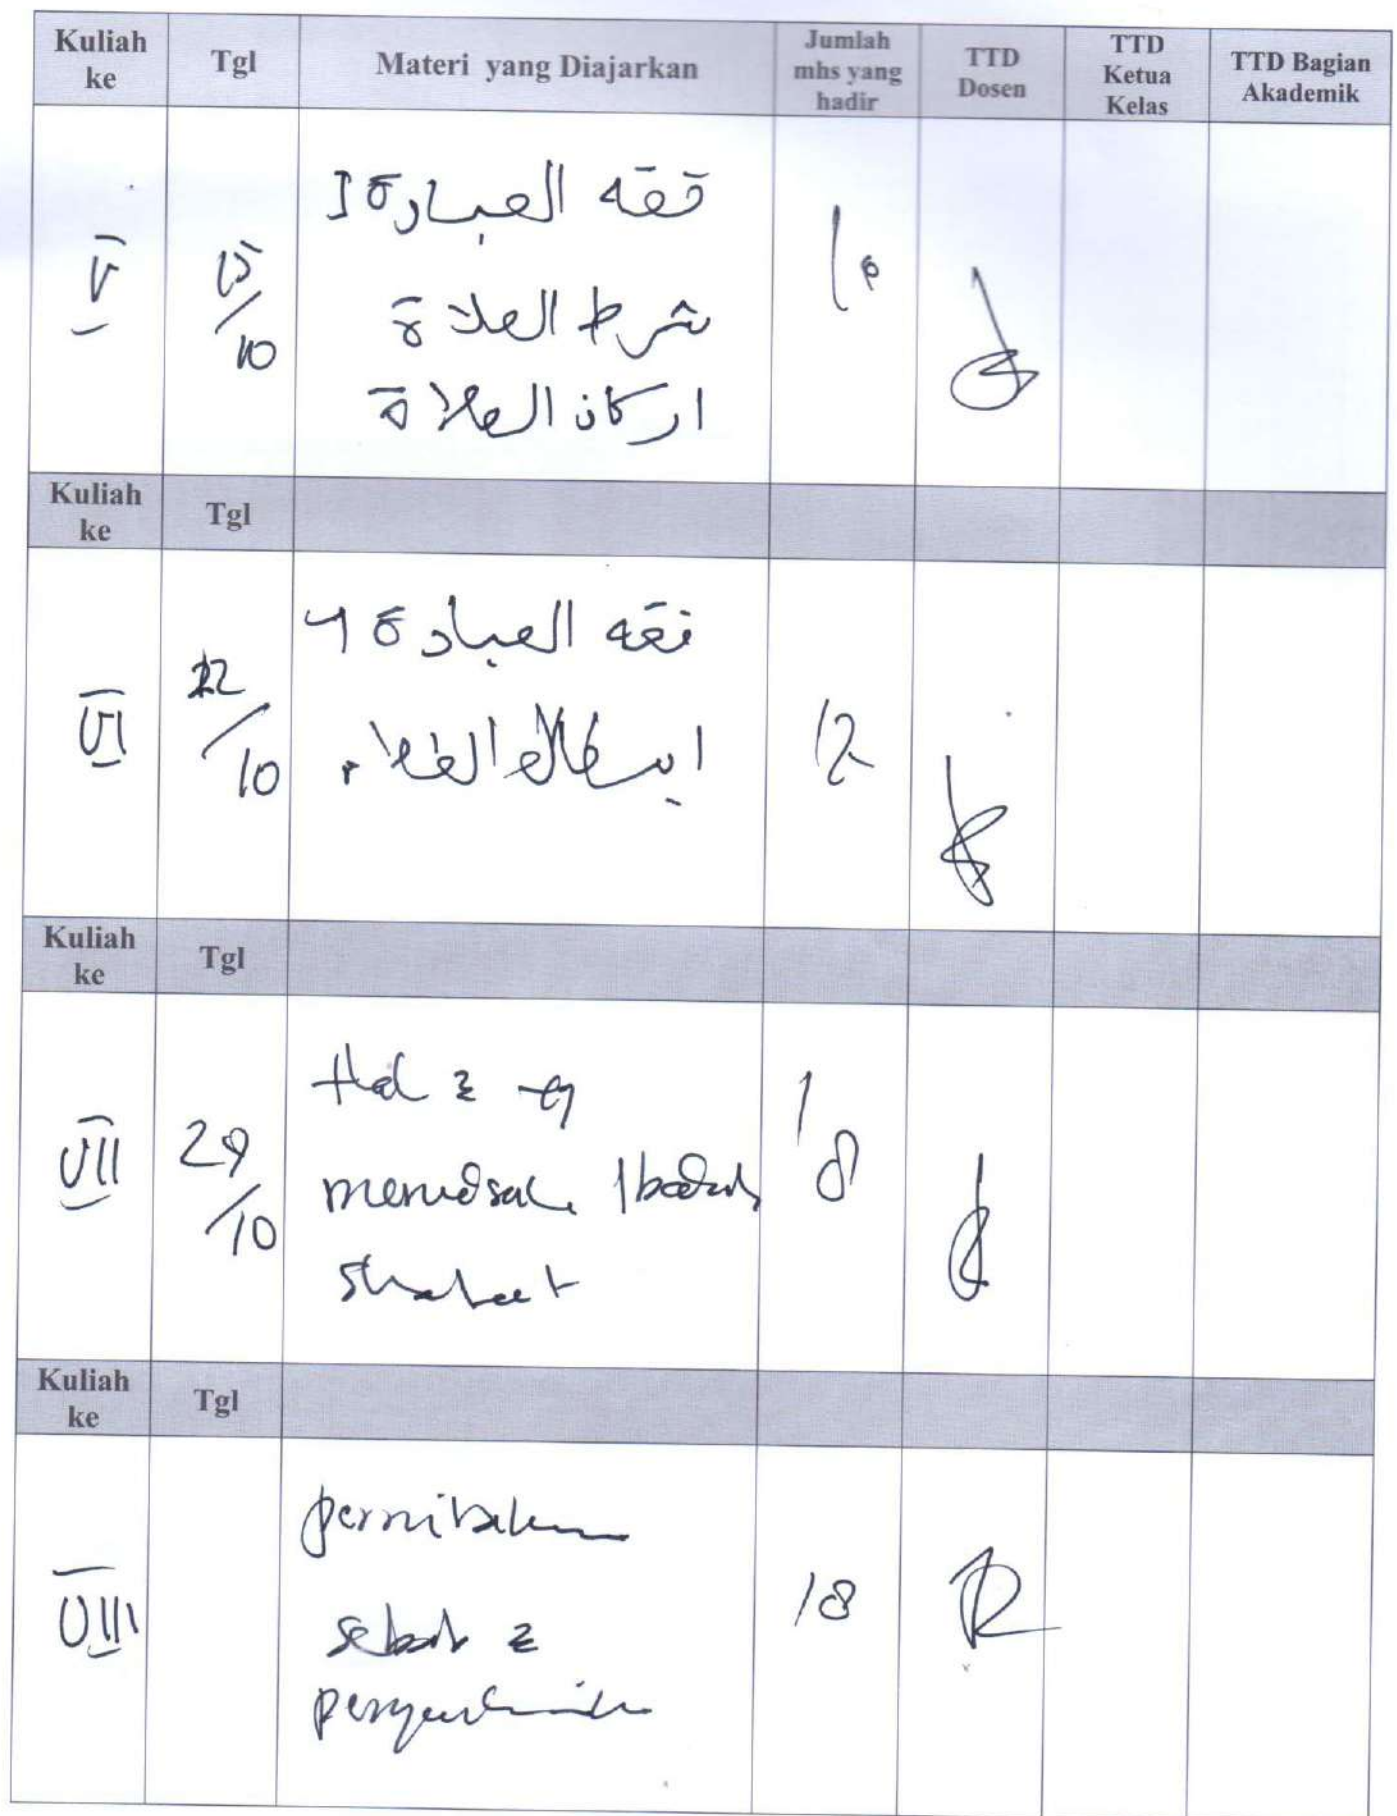 Kuliah ke Tgl Materi yang Diajarkan Jumlah mhs yang hadir TTD Dosen TTD Ketua Kelas TTD Bagian Akademik
V 15/10 فقه العبادة I 10
شرط الصلاة
اركان الصلاة
Kuliah ke Tgl
VI 22/10 فقه العبادة 12
Kuliah ke Tgl
VII 29/10 Hal 2 yg 18
merusak Ibadah
shalat
Kuliah ke Tgl
VIII pernikahan 18
sebab 2